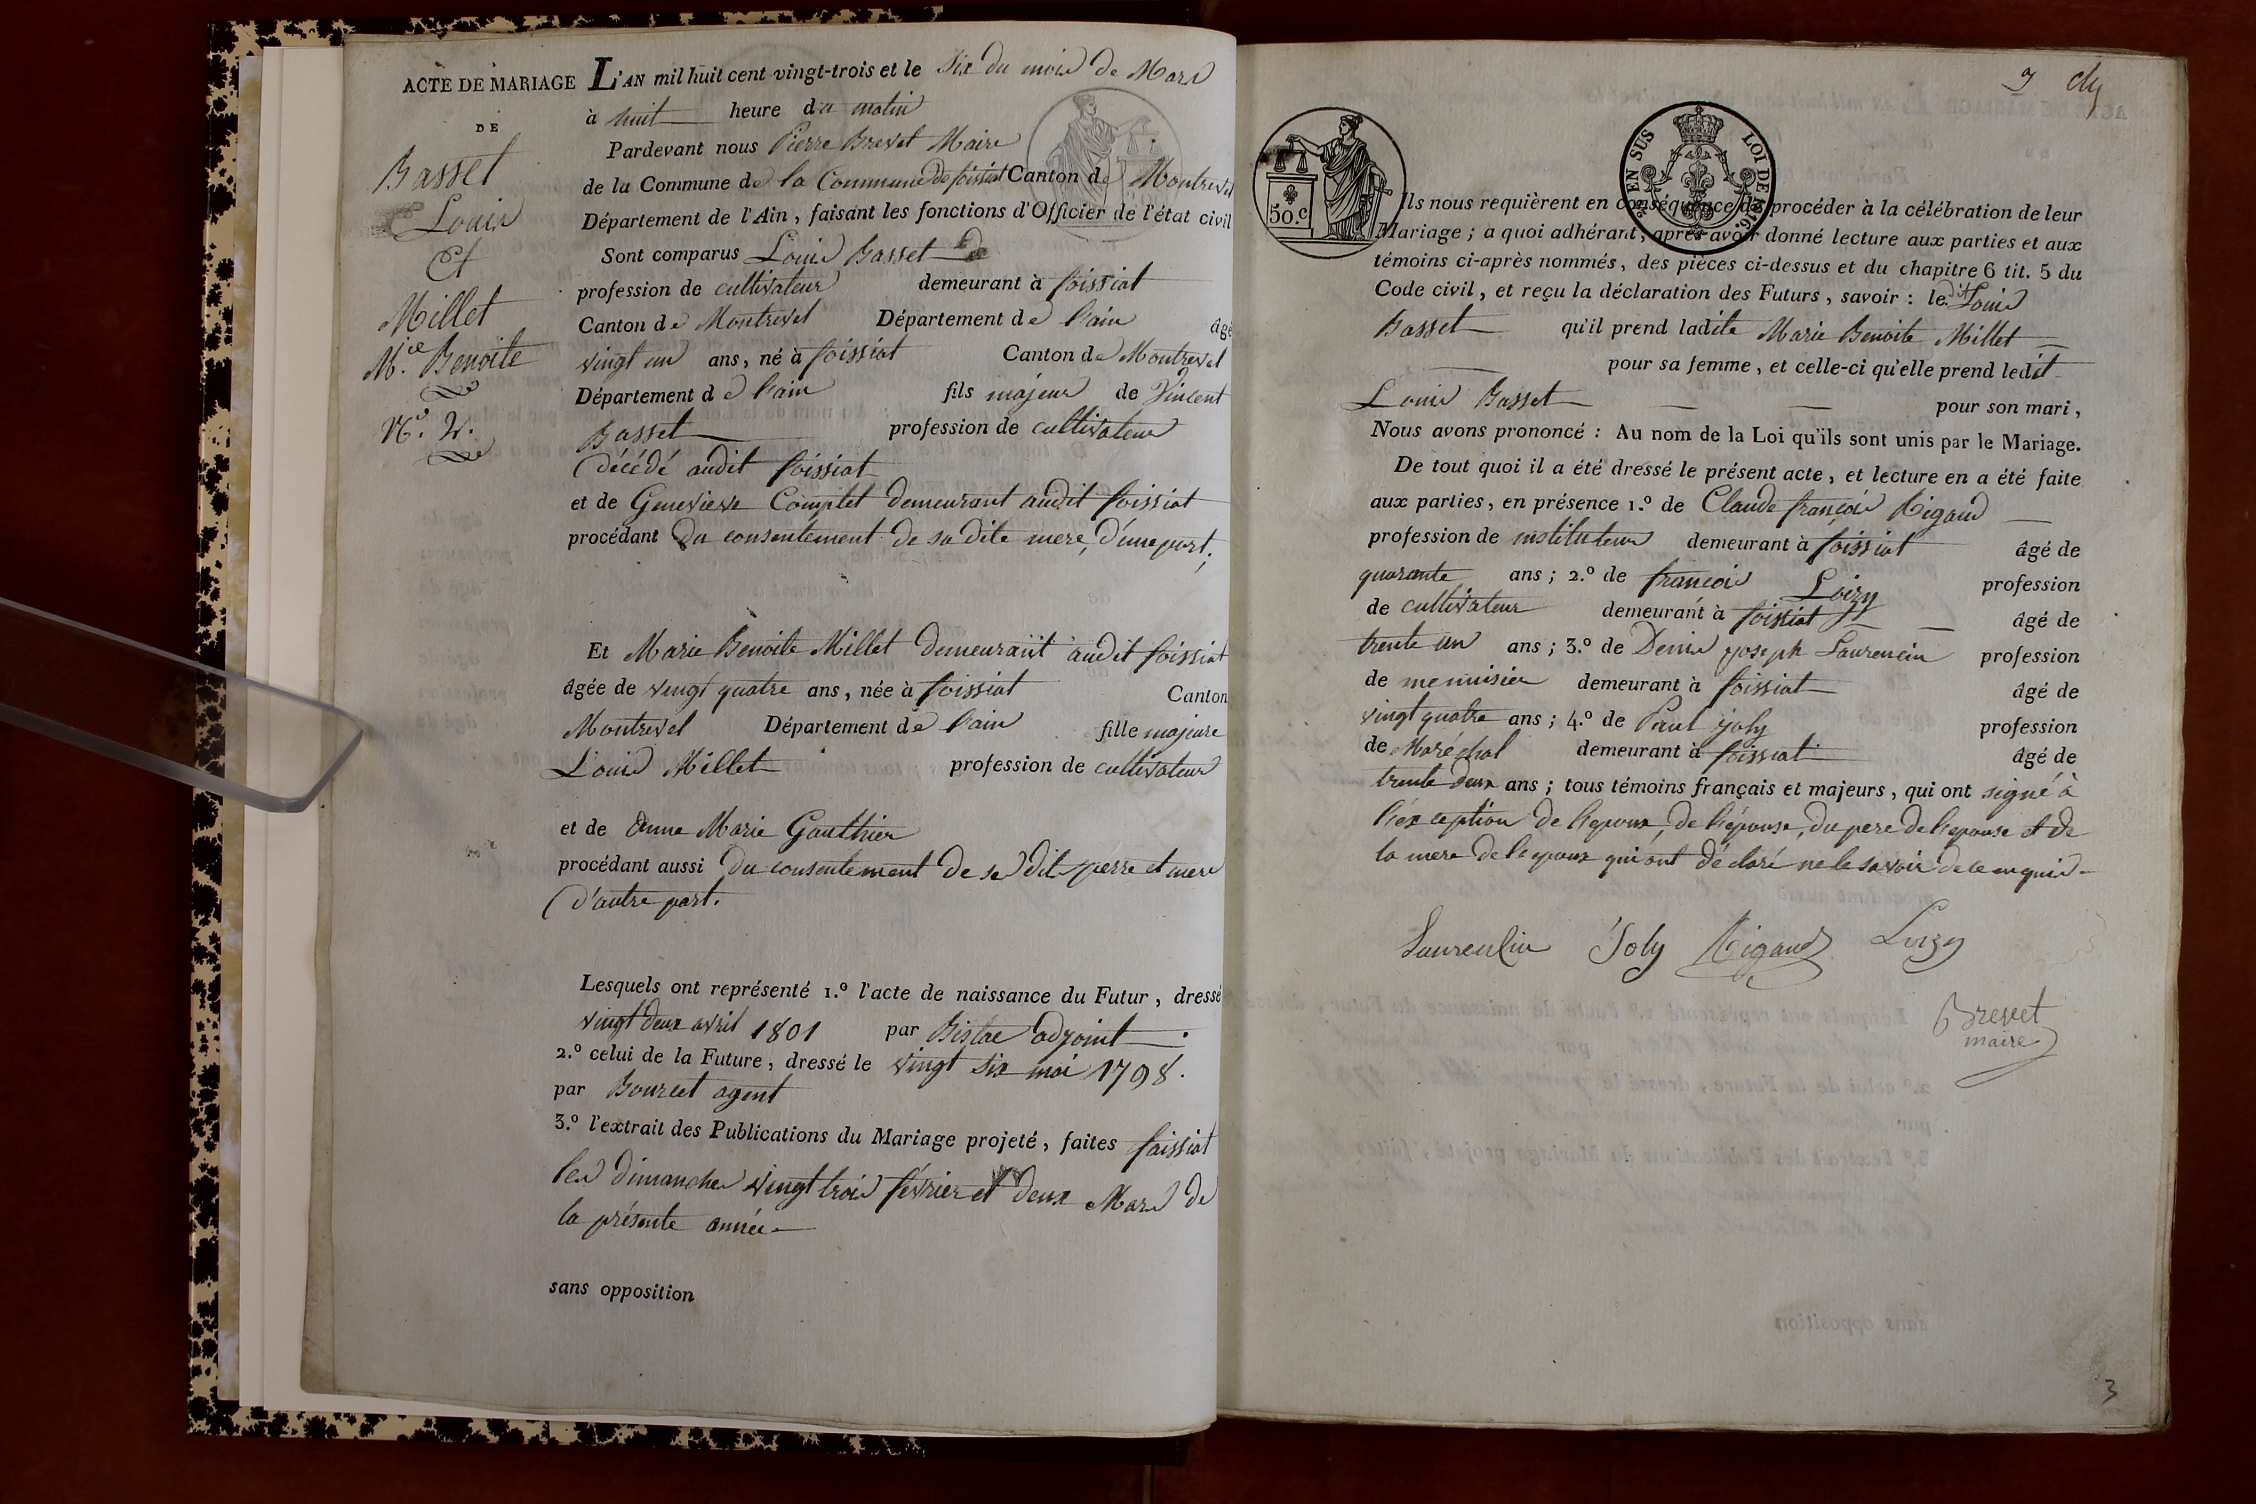 ACTE DE MARIAGE
DE
Basset
Louis
Et
Millet
M.ie Benoite
N.o 2.
L'AN mil huit cent vingt-trois et le Six du mois de Mars
à huit heure du matin
Pardevant nous Pierre Brevet Maire
de la Commune de la Commune de foissiat Canton de Montrevel
Département de l'Ain, faisant les fonctions d'Officier de l'état civil
Sont comparus Louis Basset
profession de cultivateur demeurant à foissiat
Canton de Montrevel Département de l'ain âgé
vingt un ans, né à foissiat Canton de Montrevel
Département de l'ain fils majeur de Vincent
Basset profession de cultivateur
décédé audit foissiat
et de Genevieve Complet demeurant audit foissiat
procédant du consentement de sa dite mere, d'une part;
Et Marie Benoite Millet demeurant audit foissiat
âgée de vingt quatre ans, née à foissiat Canton
Montrevel Département de l'ain fille majeure
Louis Millet profession de cultivateur
et de Anne Marie Gauthier
procédant aussi du consentement de ses dits perre et mere
d'autre part.
Lesquels ont représenté 1.o l'acte de naissance du Futur, dressé
vingt deux avril 1801 par adjoint
2.o celui de la Future, dressé le vingt six mai 1798.
par Bourcet agent
3.o l'extrait des Publications du Mariage projeté, faites foissiat
les dimanches vingt trois février et deux Mars de
la présente année
sans opposition
3
50.C
EN SUS LOI DE 1816.
Ils nous requièrent en conséquence de procéder à la célébration de leur
Mariage; à quoi adhérant, après avoir donné lecture aux parties et aux
témoins ci-après nommés, des pièces ci-dessus et du chapitre 6 tit. 5 du
Code civil, et reçu la déclaration des Futurs, savoir: le dit Louis
Basset qu'il prend ladite Marie Benoite Millet
pour sa femme, et celle-ci qu'elle prend ledit
Louis Basset pour son mari,
Nous avons prononcé: Au nom de la Loi qu'ils sont unis par le Mariage.
De tout quoi il a été dressé le présent acte, et lecture en a été faite
aux parties, en présence 1.o de Claude françois Rigaud
profession de instituteur demeurant à foissiat âgé de
quarante ans; 2.o de francois Loizy profession
de cultivateur demeurant à foissiat âgé de
trente un ans; 3.o de Denis joseph Laurencin profession
de menuisier demeurant à foissiat âgé de
vingt quatre ans; 4.o de Paul joly profession
de Maréchal demeurant à foissiat âgé de
trente deux ans; tous témoins français et majeurs, qui ont signé à
l'éxception de l'epoux, de l'épouse, du pere de l'epouse et de
la mere de l'epoux qui ont déclaré ne le savoir de ce enquis
Laurencin Joly Rigaud Loizy
Brevet
maire
3